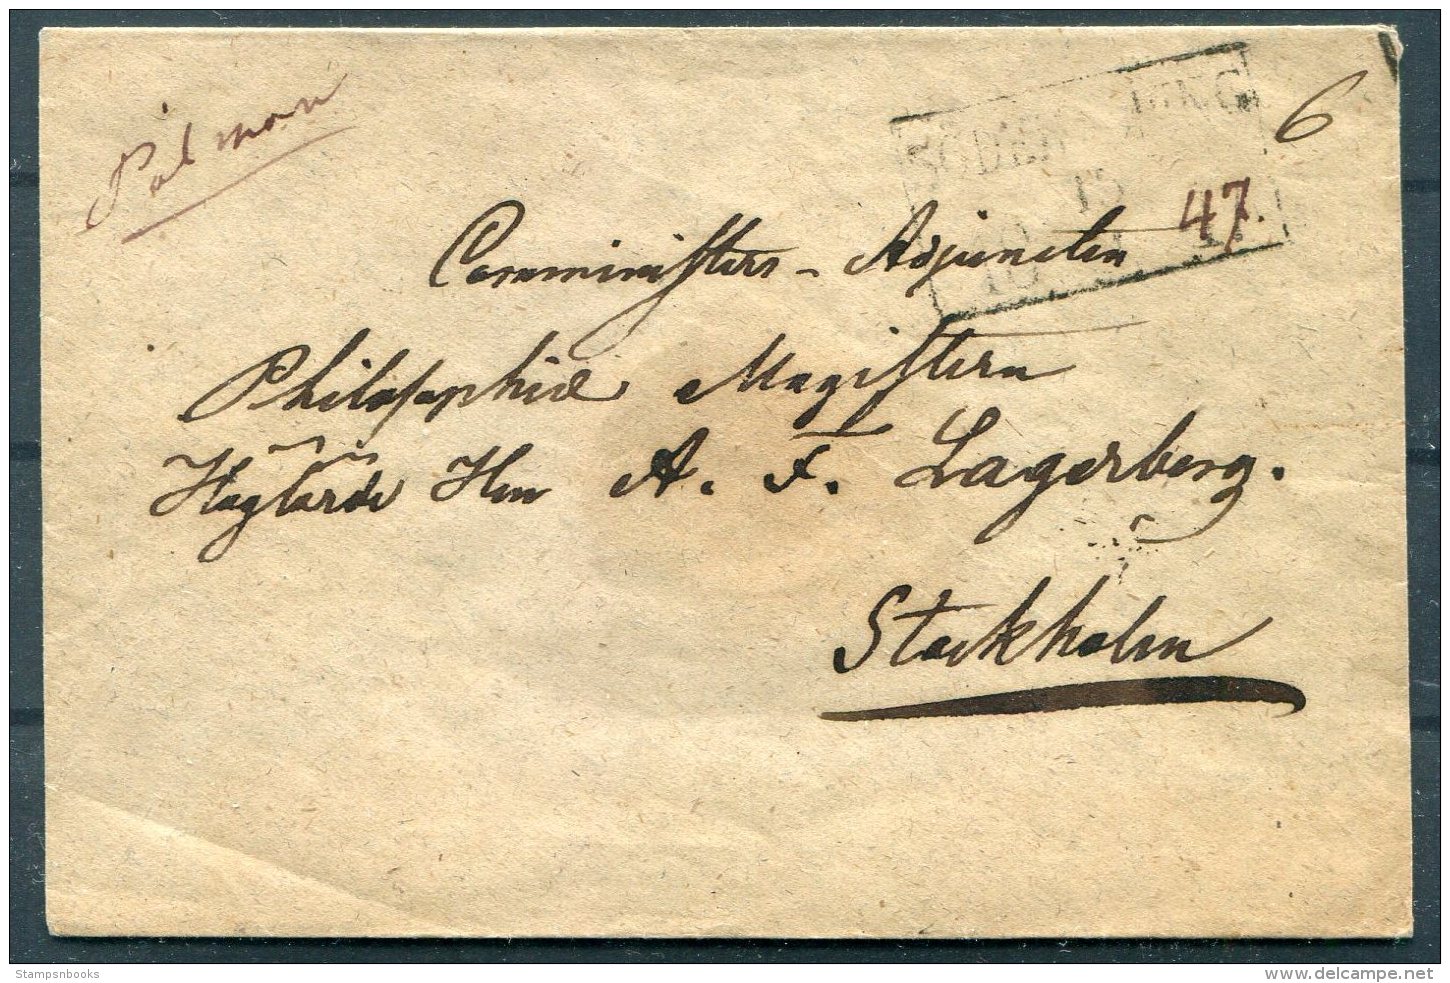 Palman
6
47.
Comministers-Adjuncten
Philosophiæ Magistern
Höglärde Herr A. F. Lagerberg.
Stockholm
Stampsnbooks
www.delcampe.net